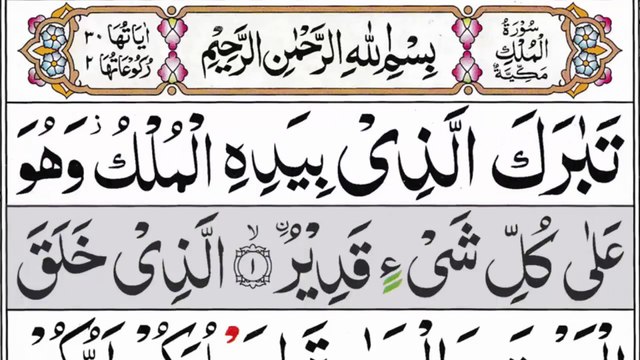 سُوْرَةُ الْمُلْكِ مَكِّيَّةٌ
بِسْمِ اللهِ الرَّحْمٰنِ الرَّحِيْمِ
اٰيَاتُهَا ٣٠
رُكُوْعَاتُهَا ٢
تَبٰرَكَ الَّذِىْ بِيَدِهِ الْمُلْكُ ز وَهُوَ
عَلٰى كُلِّ شَىْءٍ قَدِيْرُ ۙ ١ الَّذِىْ خَلَقَ